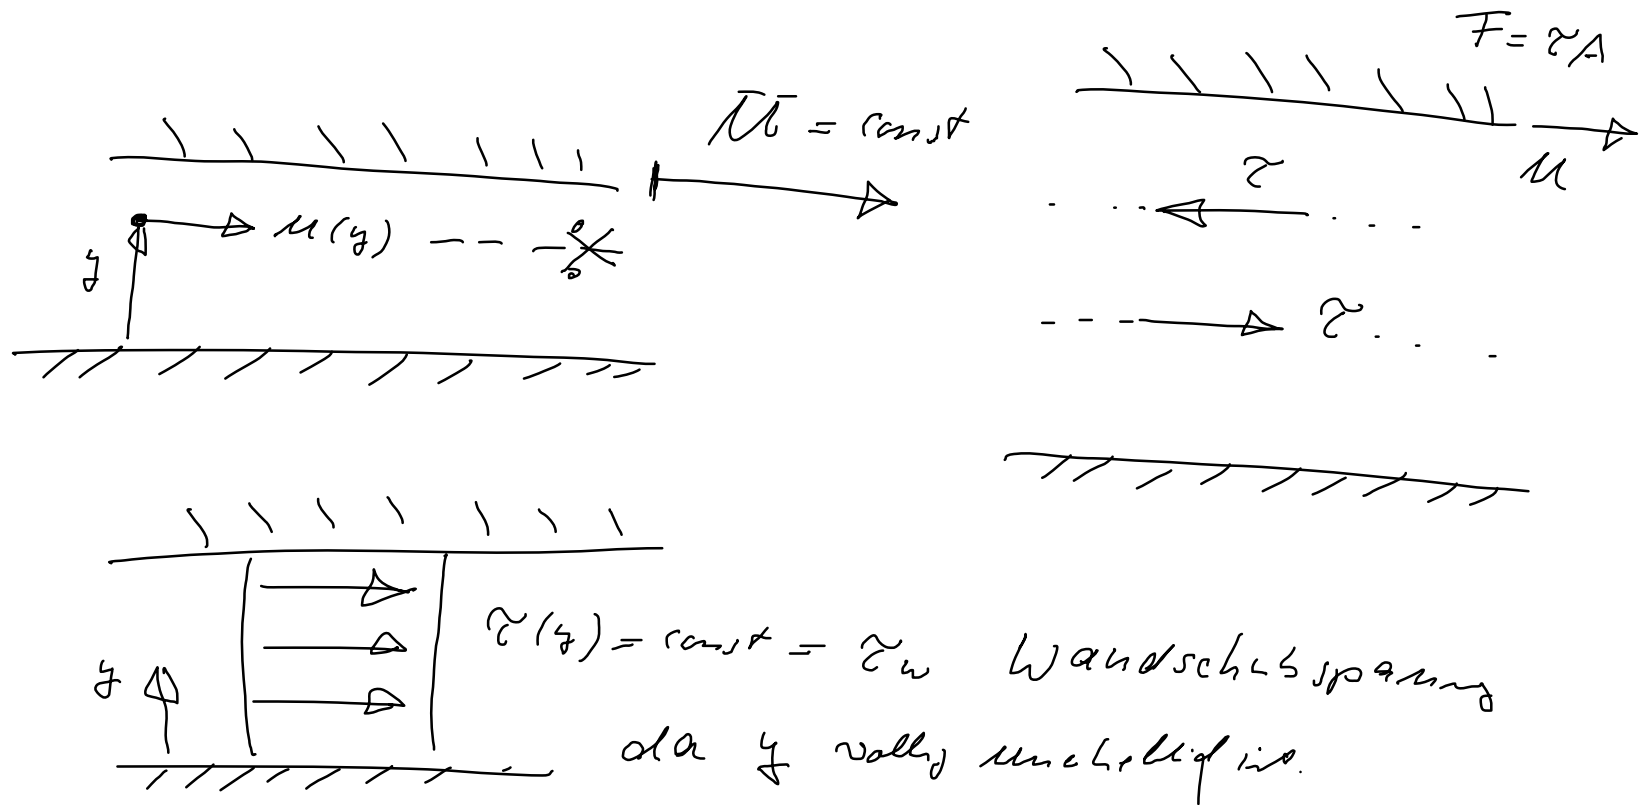 U = const
u(y)
y
F = τA
τ
u
τ
τ(y) = const = τw Wandschubspannung
y
da y völlig unerheblich ist.